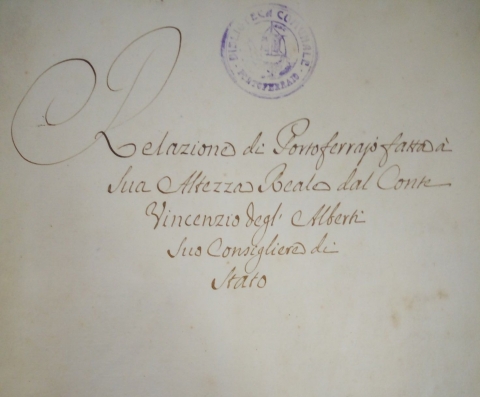 BIBLIOTECA COMUNALE
PORTOFERRAIO
Relazione di Portoferrajo fatta à
Sua Altezza Reale dal Conte
Vincenzio degl' Alberti
Suo Consigliere di
Stato